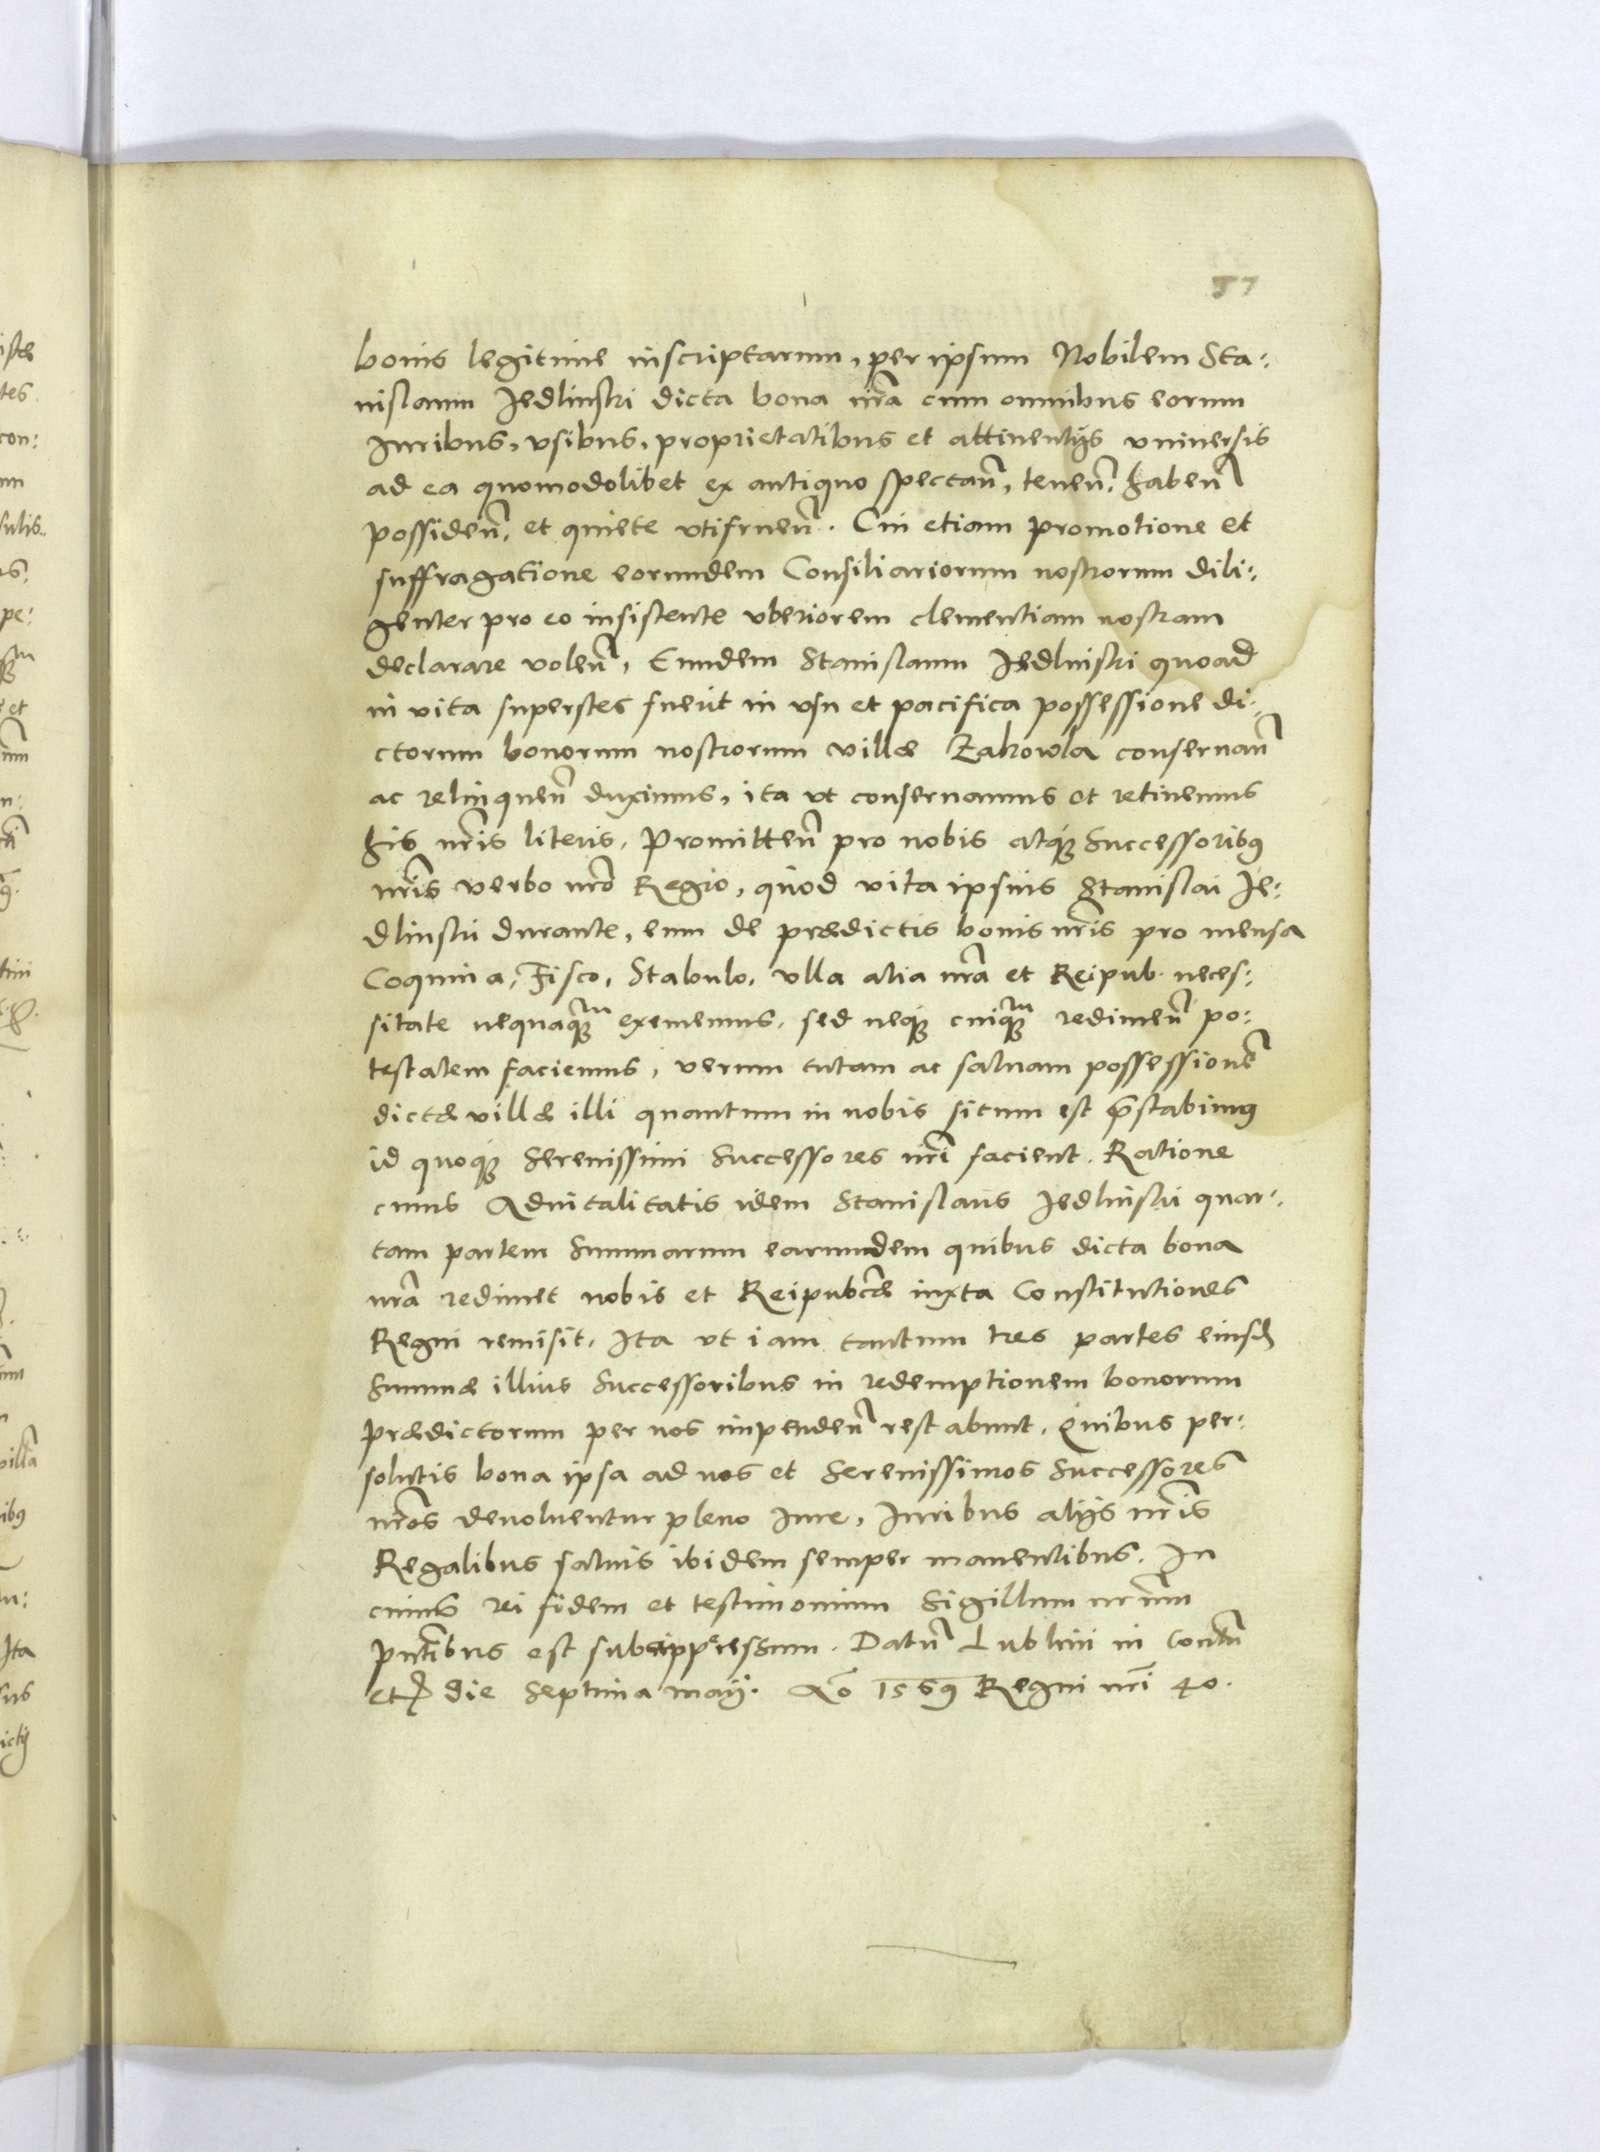 57
bonis legitime inscriptarum, per ipsum Nobilem Sta:
nislaum Jedlinski dicta bona nrã cum omnibus eorum
Juribus, vsibus, proprietatibus et attinentijs vniuersis
ad ea quomodolibet ex antiquo spectan̄, tenen̄, haben̄
possiden̄, et quiete vtifruen̄. Cui etiam promotione et
suffragatione eorundem Consiliariorum nostrorum dili:
genter pro eo insistente vberiorem clementiam nostram
declarare volen̄, Eundem Stanislaum Jedlinski quoad
in vita superstes fuerit in vsu et pacifica possessione di:
ctorum bonorum nostrorum villæ Zakowla conseruan̄
ac relinquen̄ duximus, ita vt conseruamus et retinemus
his nrĩs literis. Promitten̄ pro nobis atq̃ Successoribus
nrĩs verbo nrõ Regio, quod vita ipsius Stanislai Je:
dlinski durante, eum de prædictis bonis nrĩs pro mensa
Coquina, Fisco, Stabulo, vlla alia nrã et Reipub. neces:
sitate nequaq̃m eximemus, sed neq̃ cuiq̃m redimen̄ po:
testatem faciemus, verum tutam ac saluam possessionẽ
dictæ villæ illi quantum in nobis situm est p̃stabimus
id quoq̃ Serenissimi Successores nrĩ facient. Ratione
cuius Aduitalitatis idem Stanislaus Jedlinski quar:
tam partem Summarum earundem quibus dicta bona
nrã redimet nobis et Reipubcæ iuxta Constitutiones
Regni remisit. Ita vt iam tantum tres partes eiusd
Summæ illius Successoribus in redemptionem bonorum
prædictorum per nos impenden̄ restabunt. Quibus per:
solutis bona ipsa ad nos et Serenissimos Successores
nrõs deuoluentur pleno Jure, Juribus alijs nrĩs
Regalibus saluis ibidem semper manentibus. In
cuius rei fidem et testimonium Sigillum nrũm
pñtibus est subimpressum. Datũ Lublini in Conũtu
die Septima maij. Ao 1569 Regni nrĩ 40.